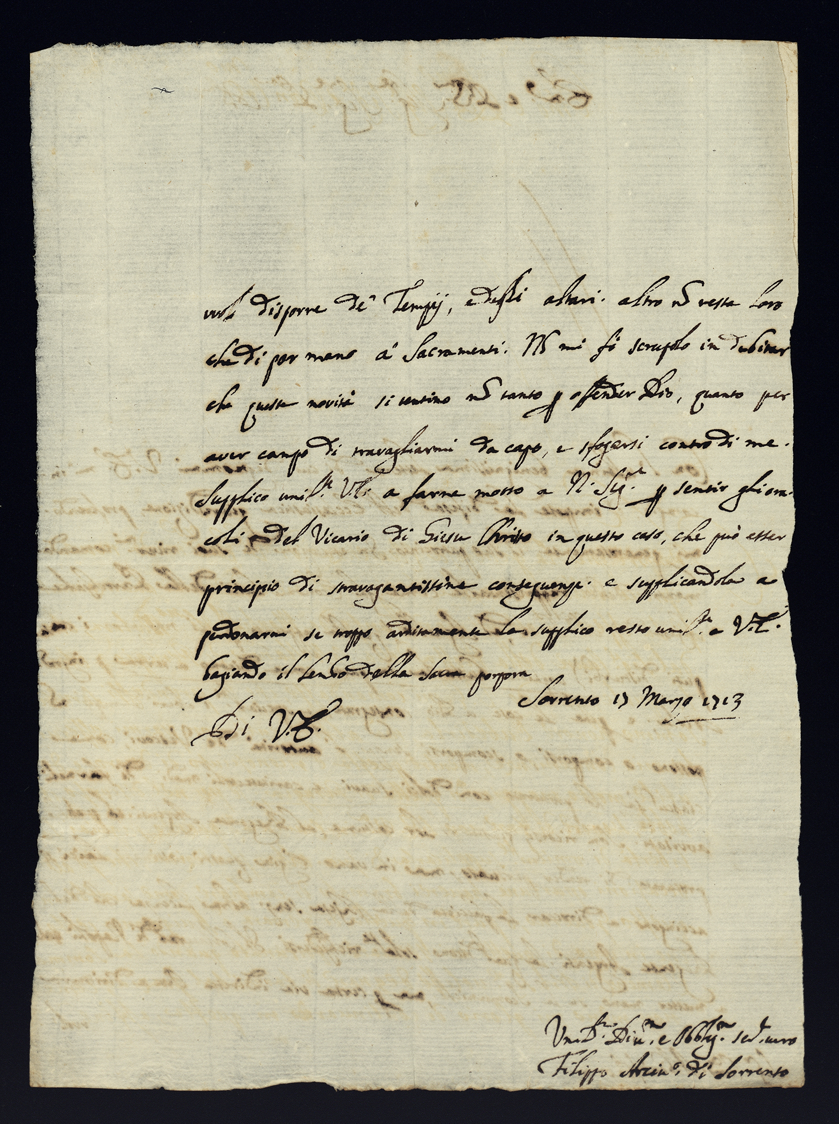 vuol disporre de' Tempij, e degli altari. altro nō resta loro
che di por mano a' Sacramenti. Nō mi fò scrupolo in dubitar
che queste novità si tentino nō tanto p offender Dio, quanto per
aver campo di travagliarmi da capo, e sfogarsi contro di me.
Supplico umil.te V.E. a farne motto a N. Sig.re p sentir gli ora-
coli del Vicario di Giesu Christo in questo caso, che può esser
principio di stravagantissime conseguenze. e supplicandola a
perdonarmi se troppo arditamente la supplico resto umil.te a V.E.
bagiando il lembo della sacra porpora
Sorrento 17 Marzo 1713
Di V.E.
Um.o Div.mo e Obblig.mo ser.e vero
Filippo Arciv.o di Sorrento